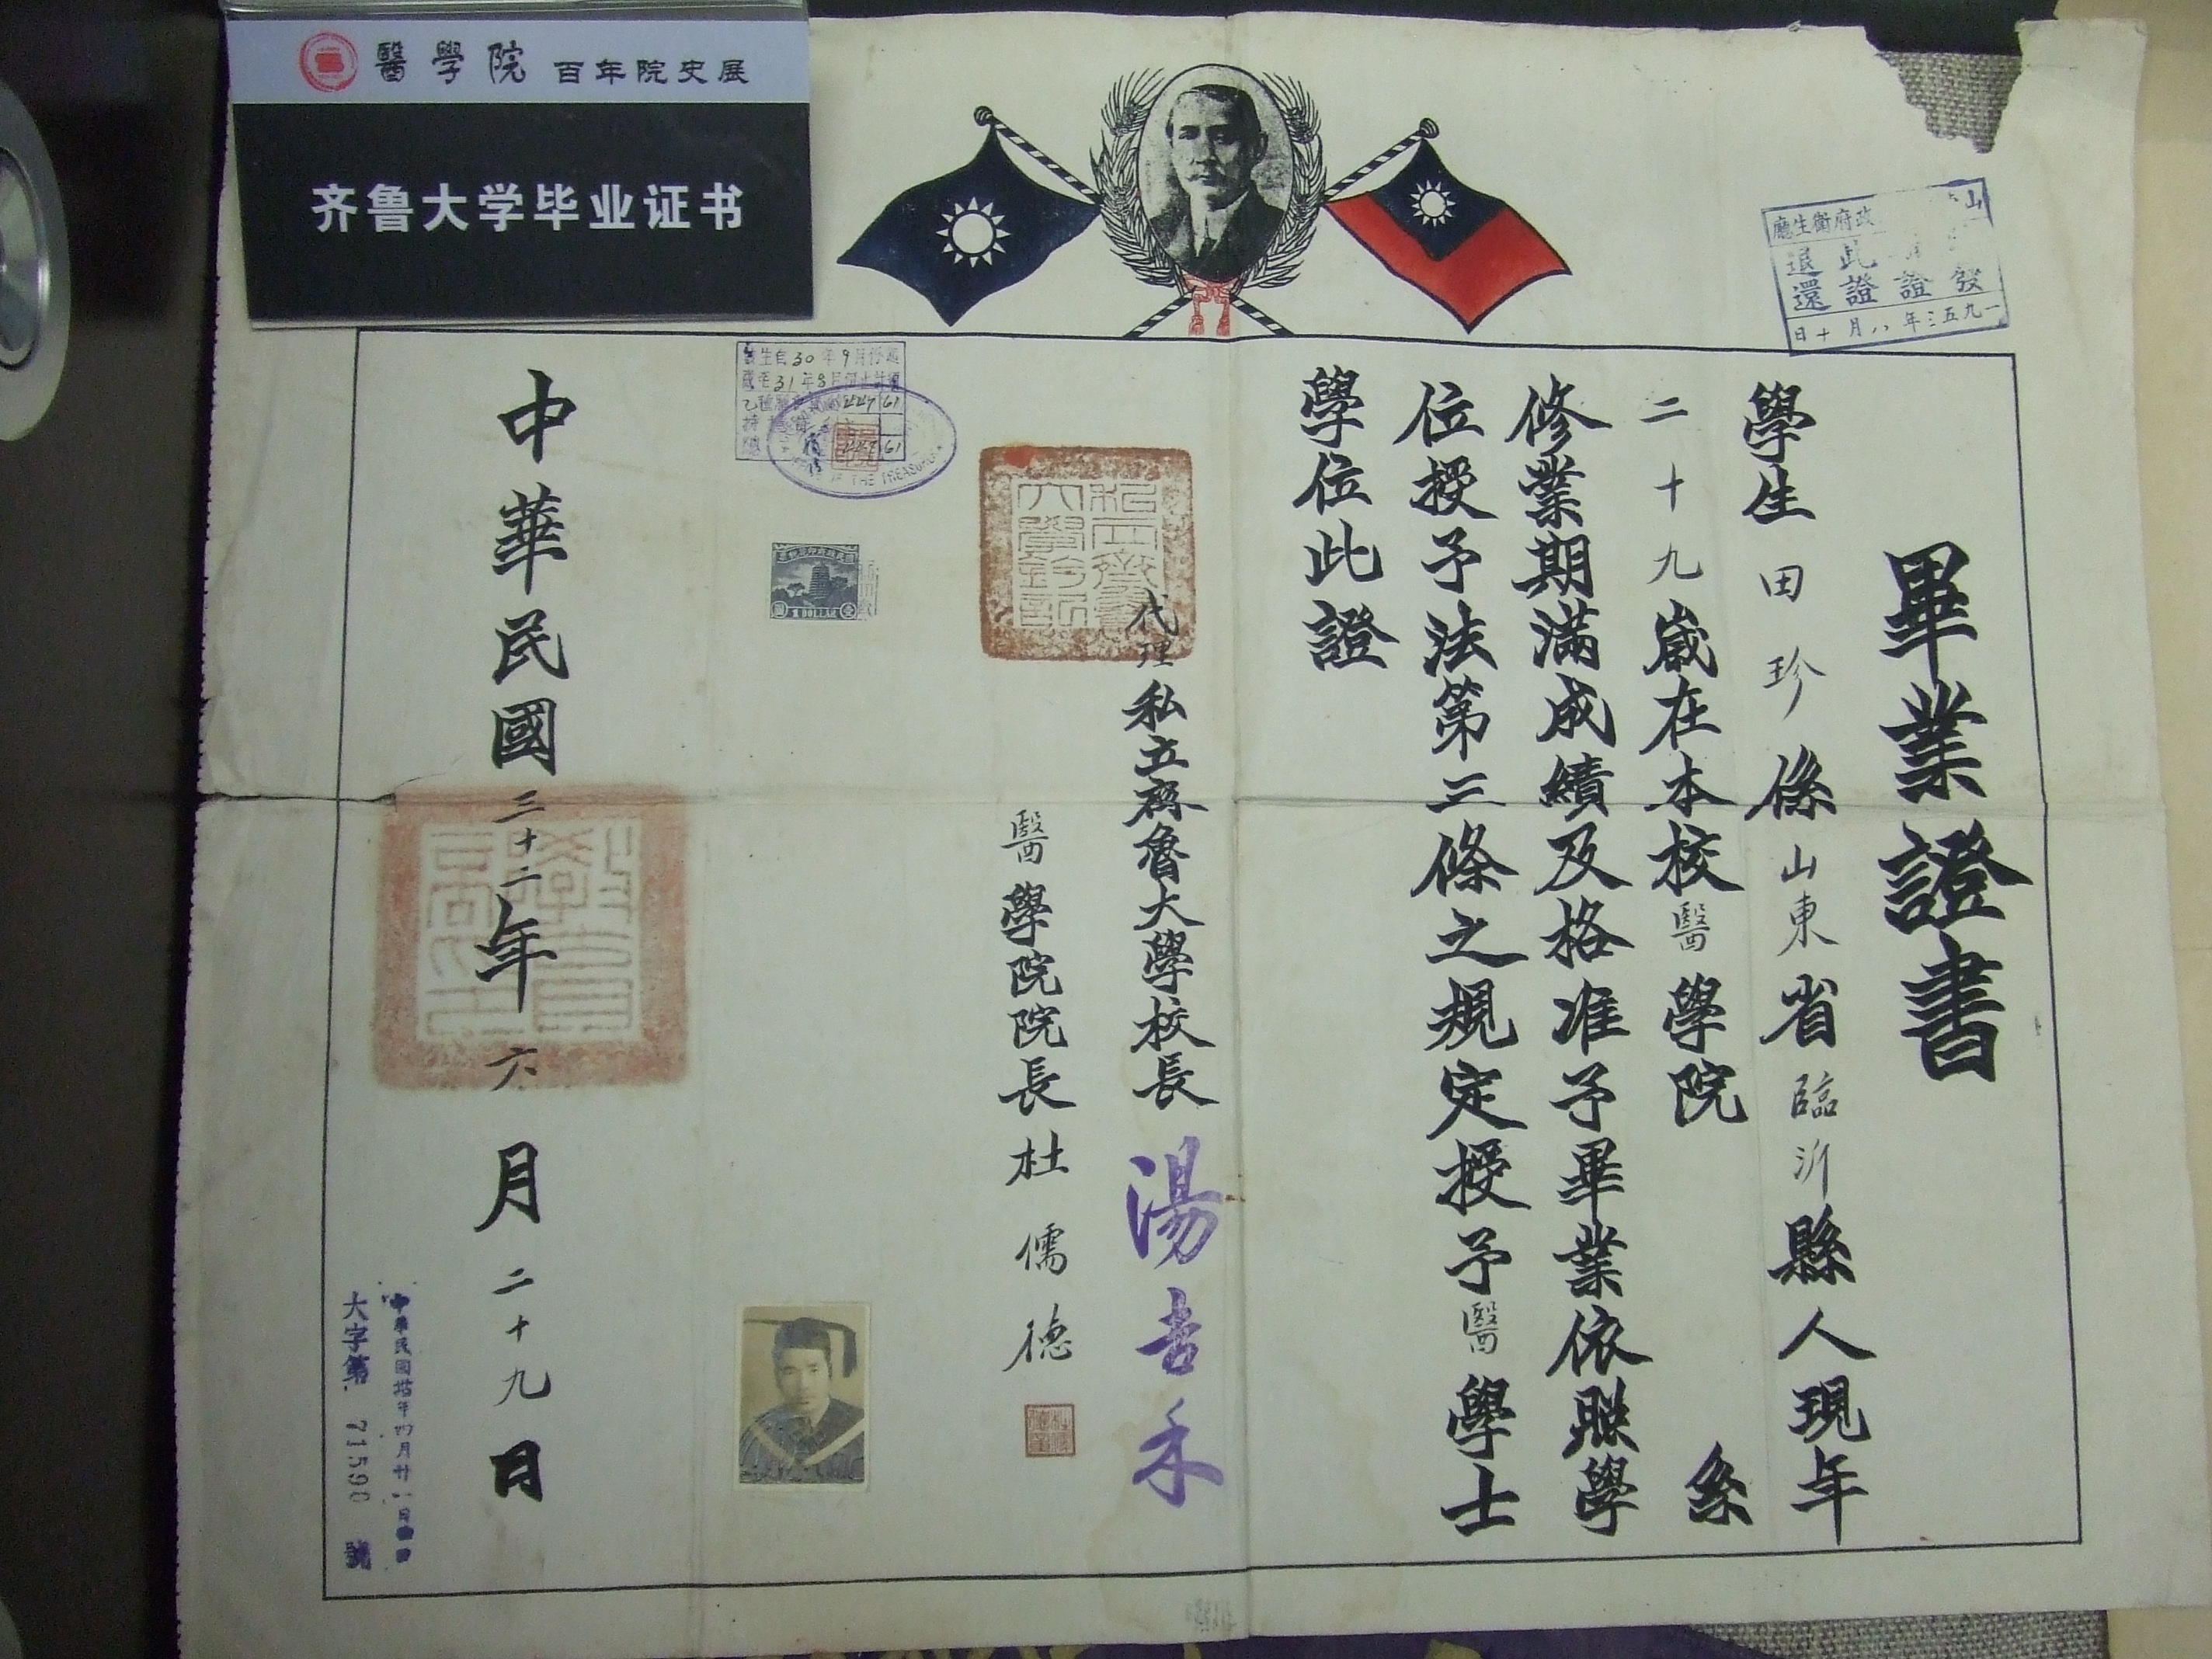 醫學院 百年院史展
齐鲁大学毕业证书
政府衛生廳
退還此證
發證
一九五三年八月十日
畢業證書
學生田珍係山東省臨沂縣人現年
二十九歲在本校醫學院 系
修業期滿成績及格准予畢業依照學
位授予法第三條之規定授予醫學士
學位此證
代理私立齊魯大學校長湯吉禾
醫學院院長杜儒德
私立齊魯大學鈐記
30年9月
31年8月
447 61
OF THE TREASURER
DOLLAR
中華民國三十二年六月二十九日
大字第 71590 號